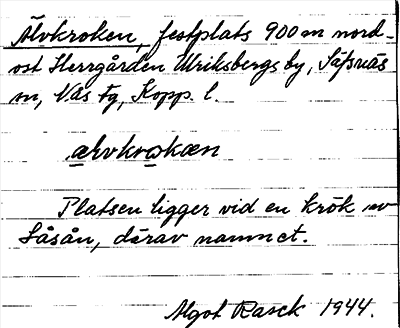 Älvkroken, festplats 900 m nord-
ost Herrgården Ulriksbergs by, Säfsnäs
sn, Nås Fg, Kopp. l.
ælvkrokæn
Platsen ligger vid en krök av
Såsån, därav namnet.
Algot Rasck 1944.